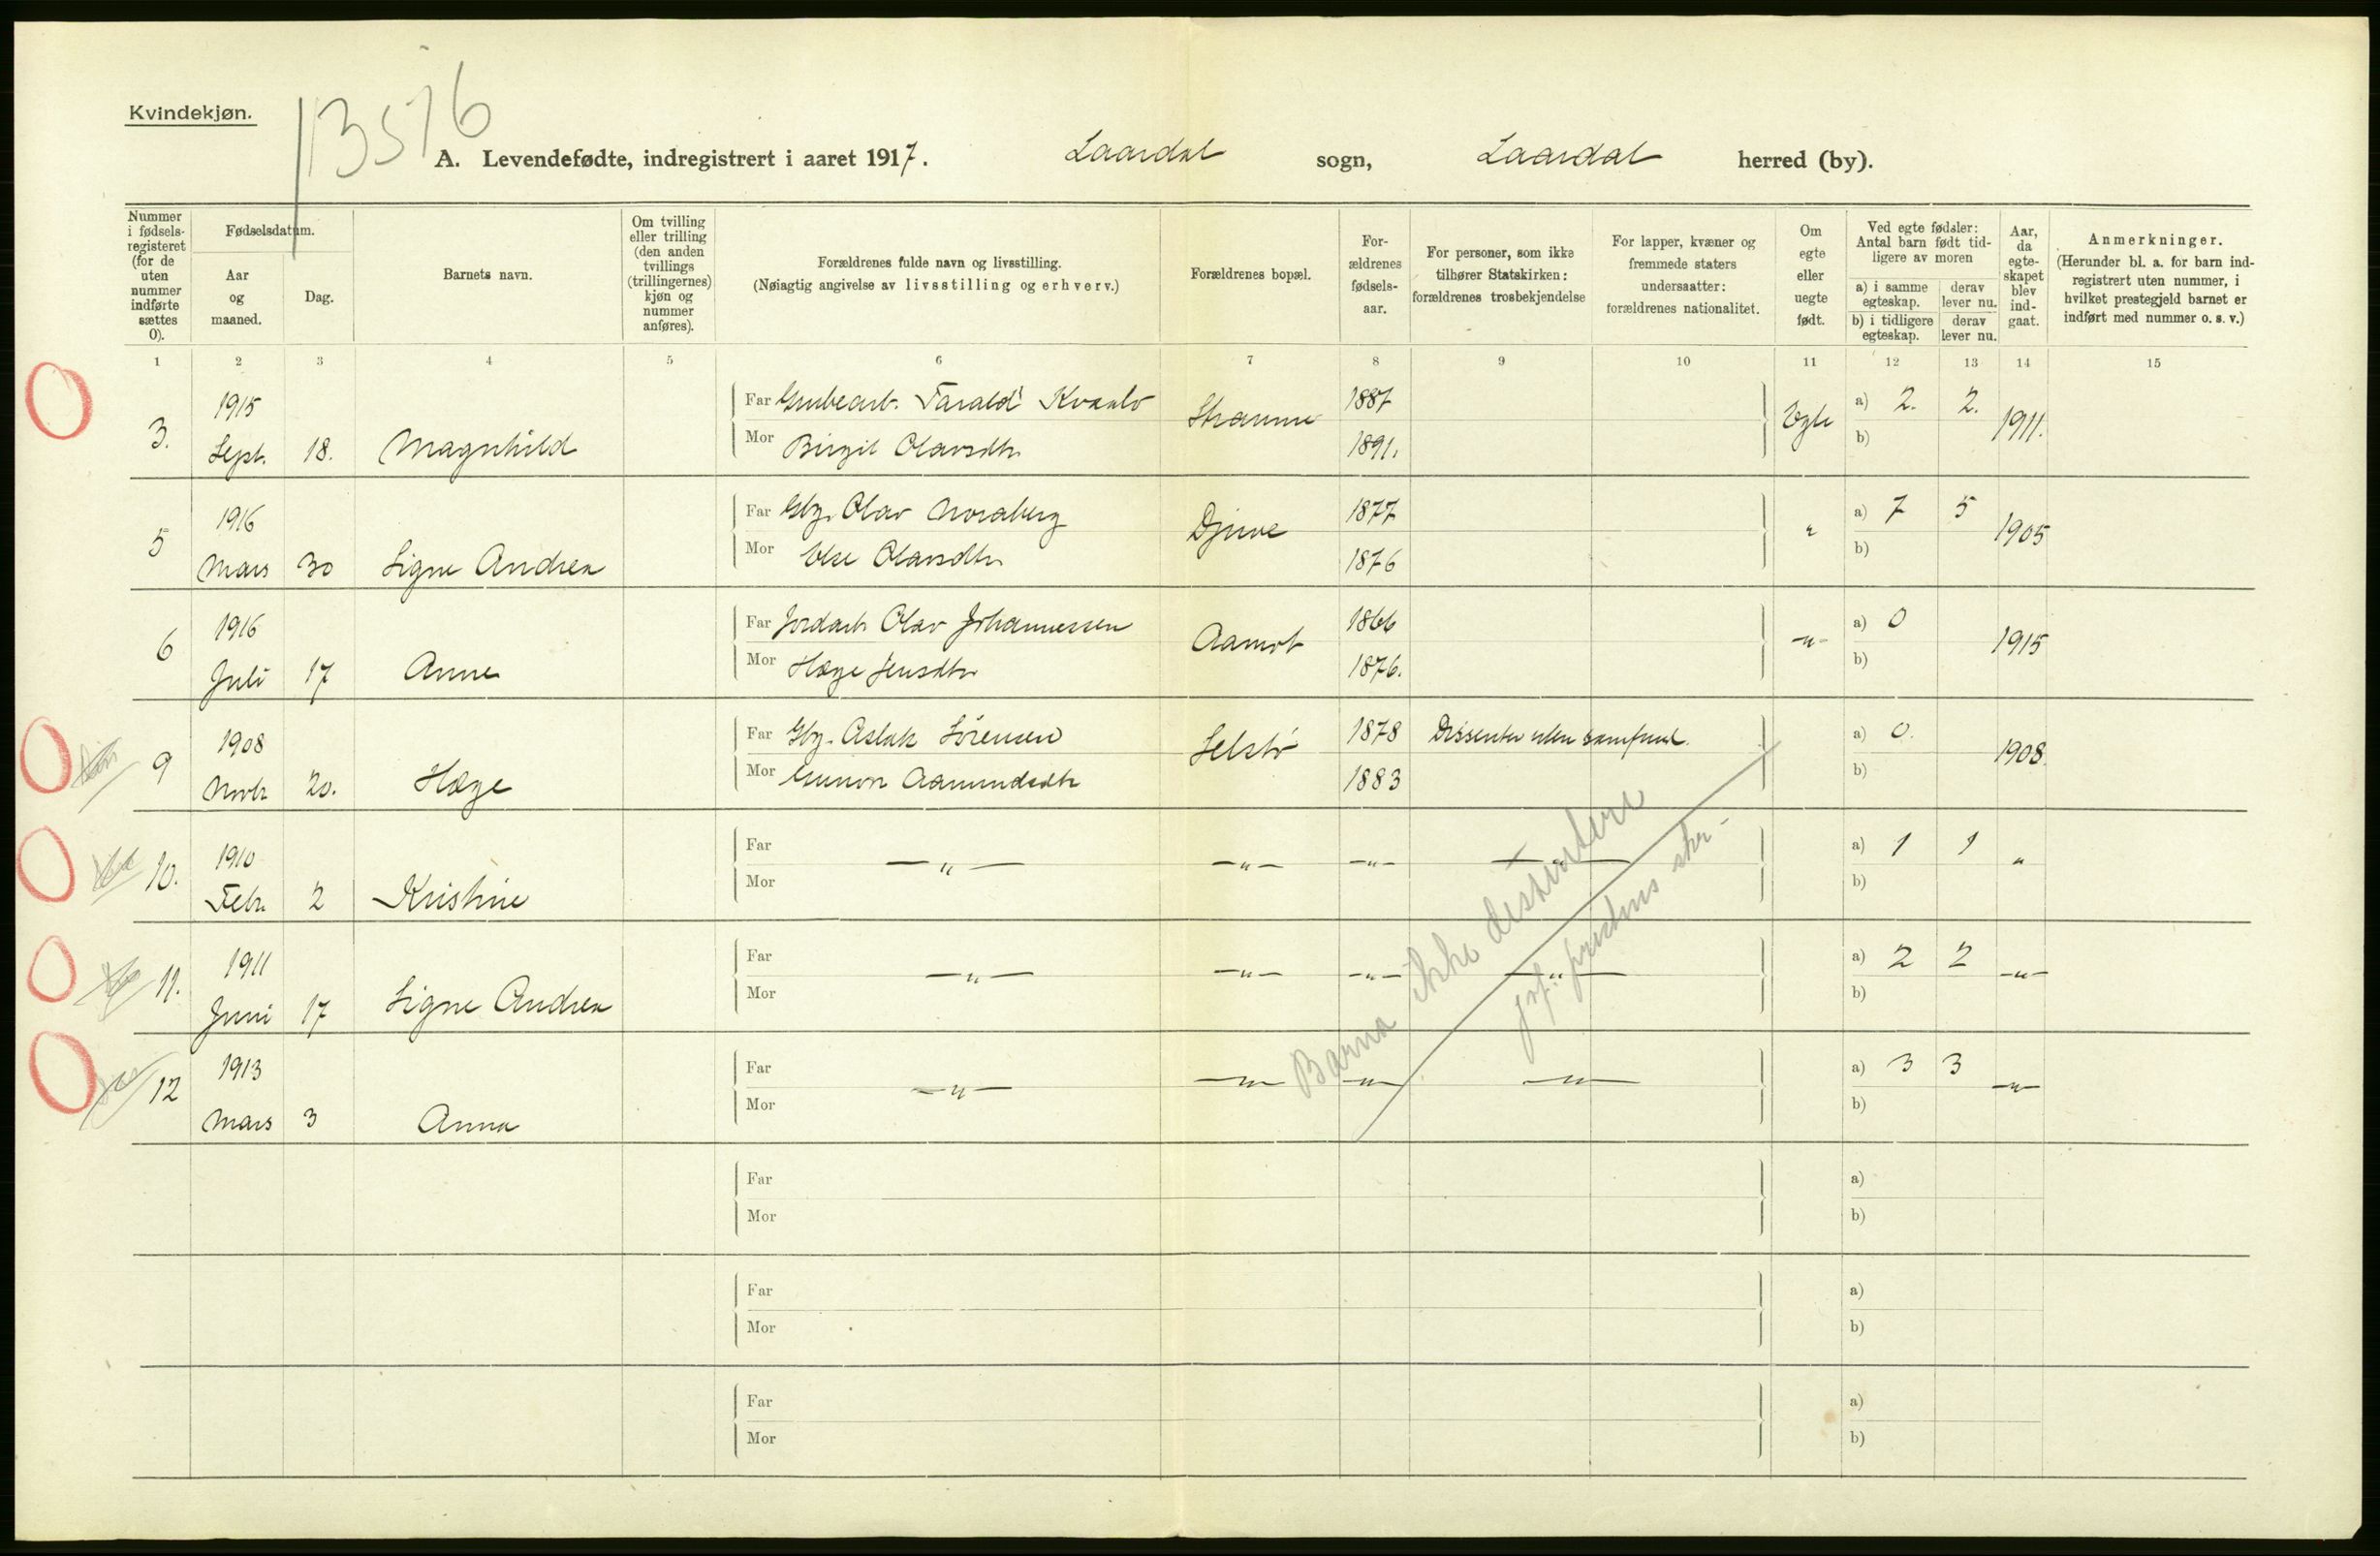 Kvindekjøn.
13576
A. Levendefødte, indregistrert i aaret 1917. Laardal sogn, Laardal herred (by).
Nummer i fødsels-registeret (for de uten nummer indførte sættes 0).
Fødselsdatum.
Aar og maaned.
Dag.
Barnets navn.
Om tvilling eller trilling (den anden tvillings (trillingernes) kjøn og nummer anføres).
Forældrenes fulde navn og livsstilling.
(Nøiagtig angivelse av livsstilling og erhverv.)
Forældrenes bopæl.
For-ældrenes fødsels-aar.
For personer, som ikke tilhører Statskirken: forældrenes trosbekjendelse
For lapper, kvæner og fremmede staters undersaatter: forældrenes nationalitet.
Om egte eller uegte født.
Ved egte fødsler: Antal barn født tid-ligere av moren
a) i samme egteskap.
derav lever nu.
b) i tidligere egteskap.
derav lever nu.
Aar, da egte-skapet blev ind-gaat.
Anmerkninger.
(Herunder bl. a. for barn ind-registrert uten nummer, i hvilket prestegjeld barnet er indført med nummer o. s. v.)
1 2 3 4 5 6 7 8 9 10 11 12 13 14 15
1915 Far Grubearb. Tarald Kvaalo 1887 a) 2. 2.
3. Sept. 18. Magnhild Mor Birgit Olavsdtr Straume 1891. Egte b) 1911.
1916 Far Gbr. Olav Noraberg 1877 a) 7 5
5 Mars 30 Signe Andrea Mor Else Olavsdtr Djuve 1876 " b) 1905
1916 Far Jordarb Olav Johannessen 1866 a) 0
6 Juli 17 Anne Mor Hæge Jensdtr Aamot 1876. -"- b) 1915
1908 Far Gbr. Aslak Sörensen 1878 Dissenter uten samfund. a) 0.
9 Novbr 20. Hæge Mor Gunvor Aamundsdtr Selstö 1883 b) 1908.
1910 Far a) 1 1
10. Febr. 2 Kristine Mor -"- -"- -"- -"- b) "
1911 Far a) 2 2
11. Juni 17 Signe Andrea Mor -"- -"- -"- -"- b) -"-
1913 Far a) 3 3
12 Mars 3 Anna Mor -"- -"- -"- -"- b) -"-
Barna ikke dissentere
jvf. prestens skr.
Far a)
Mor b)
Far a)
Mor b)
Far a)
Mor b)